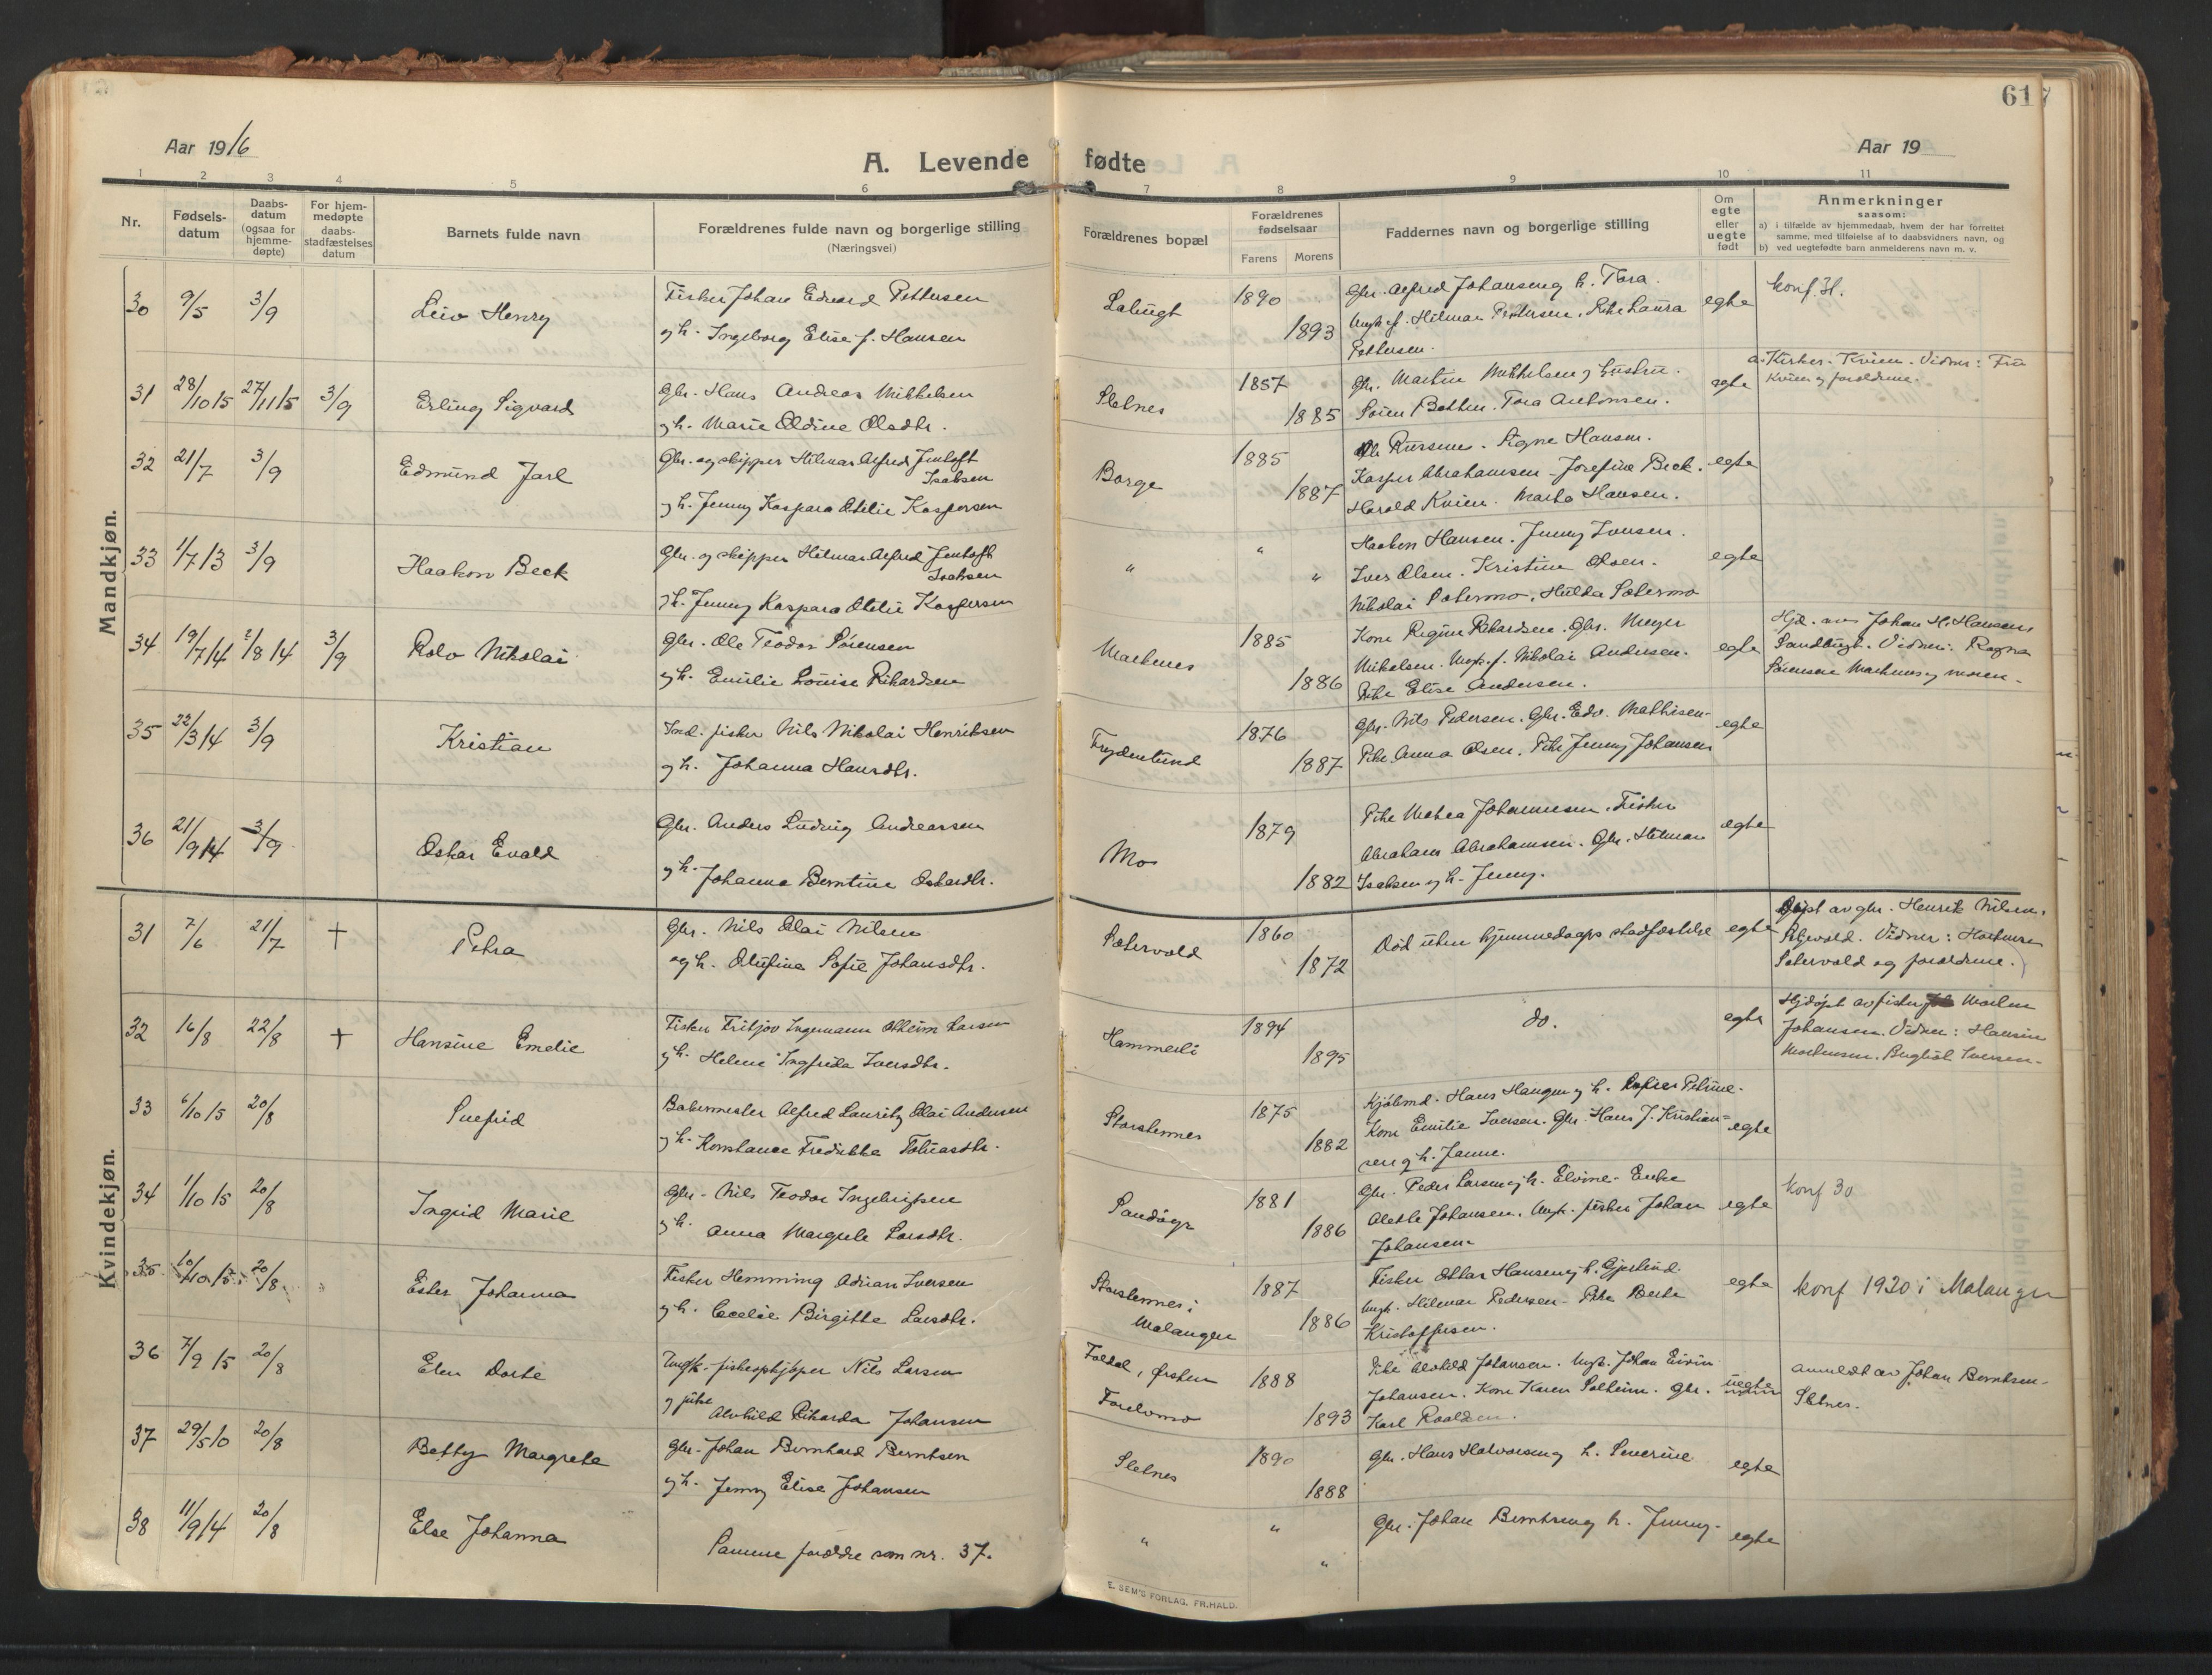 Aar 1916
A. Levende fødte
Aar 19
617
1 2 3 4 5 6 7 8 9 10 11
Nr.
Fødsels-
datum
Daabs-
datum
(ogsaa for
hjemme-
døpte)
For hjem-
medøpte
daabs-
stadfæstelses
datum
Barnets fulde navn
Forældrenes fulde navn og borgerlige stilling
(Næringsvei)
Forældrenes bopæl
Forældrenes
fødselsaar
Farens Morens
Faddernes navn og borgerlige stilling
Om
egte
eller
uegte
født
Anmerkninger
saasom:
a) i tilfælde av hjemmedaab, hvem der har forrettet
samme, med tilføielse af to daabsvidners navn, og
b) ved uegtefødte barn anmelderens navn m. v.
Mandkjøn.
30 9/5 3/9 Leiv Henry
Fisker Johan Edvard Pettersen
og h. Ingeborg Elise f. Hansen
1890
1893
Gbr. Alfred Johansen og h. Tora.
Ungk. f. Hilmar Pettersen. Pike Laura
Pettersen.
egte
konf. H.
31 28/10 15 27/11 15 3/9 Erling Sigvard
Gbr. Hans Andreas Mikkelsen
og h. Marie Oldine Olsdtr.
Sletnes
1857
1885
Gbr. Martin Mikkelsen og hustru.
Tora Antonsen.
egte
a. Kirkes. Kvien. Vidner: Fru
Kvien og forældrene.
32 21/7 3/9 Edmund Jarl
Gbr. og skipper Hilmar Alfred Jentoft
Isaksen
og h. Jenny Kaspara Otelie Kaspersen
Borge
1885
1887
Signe Hansen.
Kasper Abrahamsen - Josefine Beck.
Harald Kvien. Marta Hansen.
egte
33 1/7 13 3/9 Haakon Beck
Gbr. og skipper Hilmar Alfred Jentoft
Isaksen
og h. Jenny Kaspara Otelie Kaspersen
"
" "
Haakon Hansen. Jenny Iversen.
Iver Olsen. Kristine Olsen.
Nikolai Sætermo. Hulda Sætermo
egte
34 19/7 14 2/8 14 3/9 Rolv Nikolai
Gbr. Ole Teodor Sørensen
og h. Emilie Louise Rikardsen
1885
1886
Kone Regine Rikardsen. Gbr. Meyer
Mikelsen. Ungk. f. Nikolai Andersen.
Pike Elise Andersen.
egte
Hjd. av Johan H. Hansen
Sandbugt. Vidner: Ragna
Sørensen og moren.
35 22/3 14 3/9 Kristian
Ind. fisker Nils Nikolai Henriksen
og h. Johanna Hansdtr.
Frydenlund
1876
1887
Gbr. Nils Pedersen. Gbr. Edv. Mathisen.
Pike Anna Olsen. Pike Jenny Johansen
egte
36 21/9 14 3/9 Oskar Evald
Gbr. Anders Ludvig Andreassen
og h. Johanna Berntine Oskardtr.
Mo
1879
1882
Pike Mohea Johannesen. Fisker
Abraham Abrahamsen. Gbr. Hilmar
Isaksen og h. Jenny.
egte
Kvindekjøn.
31 7/6 21/7 † Petra
Gbr. Nils Olai Nilsen
og h. Olufine Sofie Johansdtr.
Sætervold
1860
1872
Død uten hjemmedaaps stadfæstelse
egte
Døpt av gbr. Henrik Nilsen.
Vidner:
Sætervold og forældrene.
32 16/8 22/8 † Hansine Emelie
Fisker Fritjov Ingemann Larsen
og h. Helene Ingfrida Iversdtr.
Hammerli
1894
1895
do.
egte
Hjdøpt av fisker Morten
Johansen. Vidner: Hansine
Mortensen. Bergliot Iversen.
33 6/10 15 20/8 Snefrid
Bakermester Alfred Lauritz Olai Andersen
og h. Konstance Fredrikke Tobiasdtr.
Storstennes
1875
1882
Kjøbmd. Hans Haugen og h. Petrine.
Kone Emilie Iversen. Gbr. Hans J. Kristian=
sen og h. Janne.
egte
34 1/10 15 20/8 Ingrid Marie
Gbr. Nils Teodor Ingebrigtsen
og h. Anna Margrete Larsdtr.
Sandøyr
1881
1886
Gbr. Peder Larsen og h. Elvine. Enke
Alette Johansen. Ungk. fisker Johan
Johansen
egte
konf 30
35 10/10 15 20/8 Ester Johanna
Fisker Hemming Adrian Iversen
og h. Cecelie Birgitte Larsdtr.
Storstennes i
Malangen
1887
1886
Fisker Ottar Hansen og h. Gjertrud.
Ungk. Hilmar Pedersen - Pike Berte
Kristoffersen.
egte
konf 1930 i Malangen
36 7/9 15 20/8 Elen Dorte
Ungk. fiskeopkjøper Nils Larsen
og pike Alvhild Rikarda Johansen
Foldal, Ørsten
1888
1893
Pike Alvhild Johansen. Ungk. Johan Eivin
Johansen. Kone Karen Solheim. Gbr.
Karl Roaldsen.
uegte
Anmeldt av Johan Berntsen
Sletnes.
37 29/5 10 20/8 Betty Margrete
Gbr. Johan Bernhard Berntsen
og h. Jenny Elise Johansen
Sletnes
1890
1888
Gbr. Hans Halvorsen og h. Severine
egte
38 11/9 14 20/8 Else Johanna
Samme forældre som nr. 37.
"
" "
Gbr. Johan Berntsen og h. Jenny.
egte
E. SEM'S FORLAG. FR.HALD.